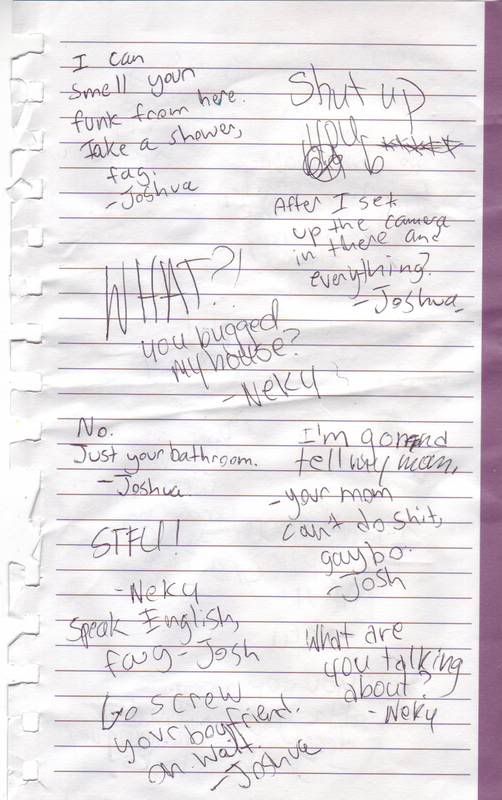 I can
smell your
funk from here.
Take a shower,
fag.
-Joshua
Shut up
you
After I set
up the camera
in there and
everything?
-Joshua
WHAT?!
you bugged
my house?
-Neky
No.
Just your bathroom.
-Joshua
I'm gonna
tell my mom,
-your mom
can't do shit,
gaybo.
-Josh
STFU!
-Neky
Speak English,
fag -Josh
What are
you talking
about?
-Neky
Go screw
your boyfriend.
oh wait.
-Joshua